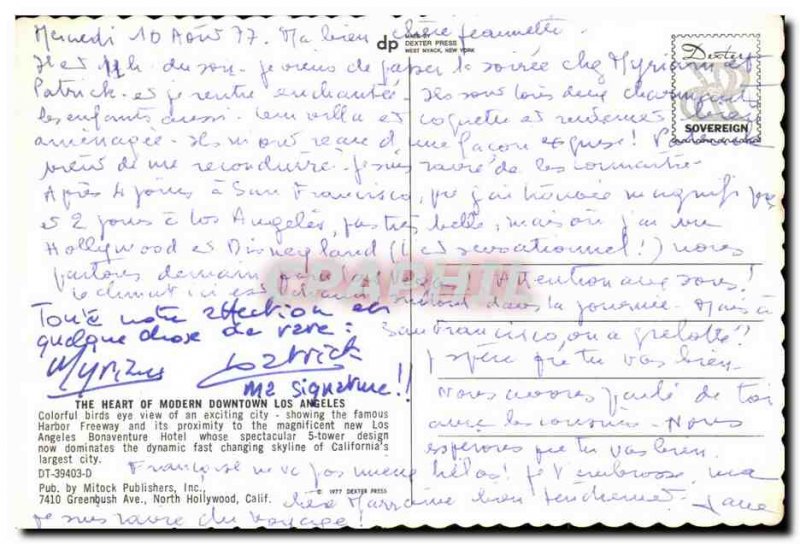 Mercredi 10 Août 77. Ma bien chère Jeannette.
Il est 11h. du soir. Je viens de passer la soirée chez Myriam et
Patrick et je rentre enchantée. Ils sont tous deux charmants
les enfants aussi. Leur villa est coquette et
aménagée. Ils m'ont reçue d'une façon exquise! Patrick
vient de me reconduire. Je suis ravie de les connaître.
Après 4 jours à San Francisco, que j'ai trouvée magnifique
et 2 jours à Los Angeles, pas très belle, mais où j'ai vu
Hollywood et Disneyland (c'est sensationnel!) nous
partons demain pour Las Vegas. Attention aux sous!
le climat ici est dans la journée. Mais à
San Francisco, on a grelotté!
J'espère que tu vas bien.
Nous avons parlé de toi
avec les cousins. Nous
espérons que tu vas bien.
Françoise ne va pas mieux hélas! Je t'embrasse, ma
chère Marraine bien tendrement.
je suis ravie du voyage!
Toute notre affection et
quelque chose de rare:
Myriam Patrick
Ma signature!!
dp
MADE BY
DEXTER PRESS
WEST NYACK, NEW YORK
Dexter
SOVEREIGN
CPAPHIL
THE HEART OF MODERN DOWNTOWN LOS ANGELES
Colorful birds eye view of an exciting city - showing the famous
Harbor Freeway and its proximity to the magnificent new Los
Angeles Bonaventure Hotel whose spectacular 5-tower design
now dominates the dynamic fast changing skyline of California's
largest city.
DT-39403-D
Pub. by Mitock Publishers, Inc.,
7410 Greenbush Ave., North Hollywood, Calif.
© 1977 DEXTER PRESS